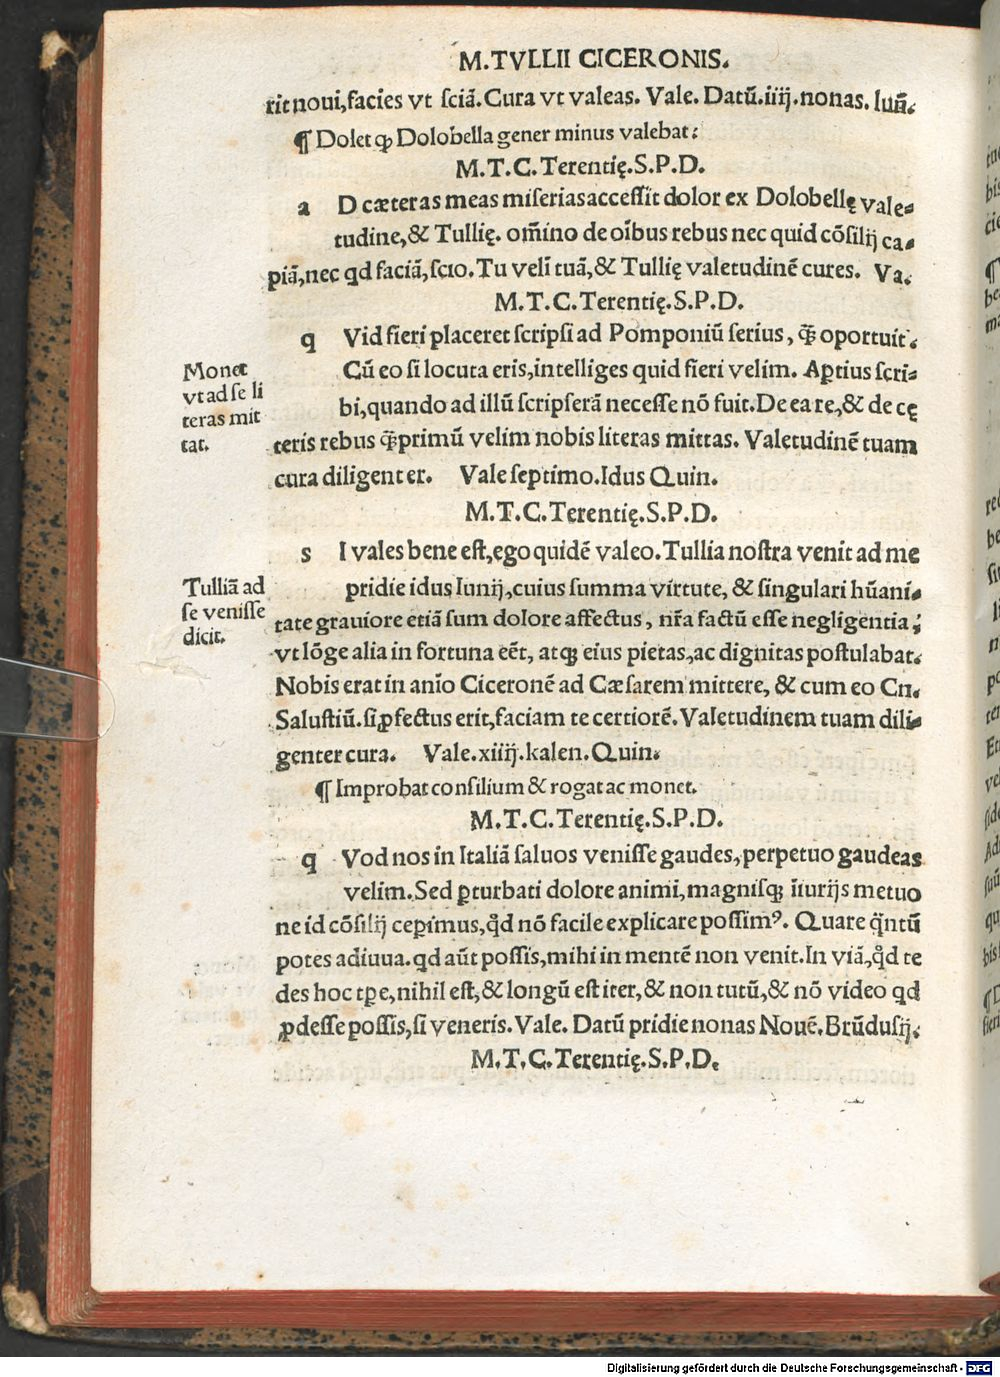 M.TVLLII CICERONIS.
rit noui,facies vt sciã.Cura vt valeas. Vale. Datũ.iiij.nonas. Iuñ.
¶ Dolet ꝙ Dolobella gener minus valebat:
M.T.C.Terentię.S.P.D.
a D cæteras meas miserias accessit dolor ex Dolobellę vale-
tudine,& Tullię. om̃ino de oĩbus rebus nec quid cõsilij ca-
piã,nec qd faciã,scio.Tu velĩ tuã,& Tullię valetudinẽ cures. Va.
M.T.C.Terentię.S.P.D.
q Vid fieri placeret scripsi ad Pomponiũ serius, q̃ꝫ oportuit.
Monet
vt ad se li
teras mit
tat.
Cũ eo si locuta eris,intelliges quid fieri velim. Aptius scri-
bi,quando ad illũ scripserã necesse nõ fuit.De ea re,& de cę
teris rebus q̃ꝫprimũ velim nobis literas mittas. Valetudinẽ tuam
cura diligenter. Vale septimo.Idus Quin.
M.T.C.Terentię.S.P.D.
s I vales bene est,ego quidẽ valeo.Tullia nostra venit ad me
Tulliã ad
se venisse
dicit.
pridie idus Iunij,cuius summa virtute, & singulari hũani-
tate grauiore etiã sum dolore affectus, nr̃a factũ esse negligentia;
vt lõge alia in fortuna eẽt, atqꝫ eius pietas,ac dignitas postulabat.
Nobis erat in anĩo Ciceronẽ ad Cæsarem mittere, & cum eo Cn.
Salustiũ.si ꝓfectus erit,faciam te certiorẽ.Valetudinem tuam dili-
genter cura. Vale.xiiij.kalen.Quin.
¶ Improbat consilium & rogat ac monet.
M.T.C.Terentię.S.P.D.
q Vod nos in Italiã saluos venisse gaudes,perpetuo gaudeas
velim.Sed ꝑturbati dolore animi,magnisqꝫ ĩiurijs metuo
ne id cõsilij cepimus,qd̃ nõ facile explicare possimꝰ. Quare q̃ntũ
potes adiuua.qd aũt possis,mihi in mentẽ non venit.In viã,qd̃ te
des hoc tꝑe,nihil est,& longũ est iter,& non tutũ,& nõ video qd
ꝓdesse possis,si veneris.Vale. Datũ pridie nonas Nouẽ.Brũdusij.
M.T.C.Terentię.S.P.D.
Digitalisierung gefördert durch die Deutsche Forschungsgemeinschaft - DFG